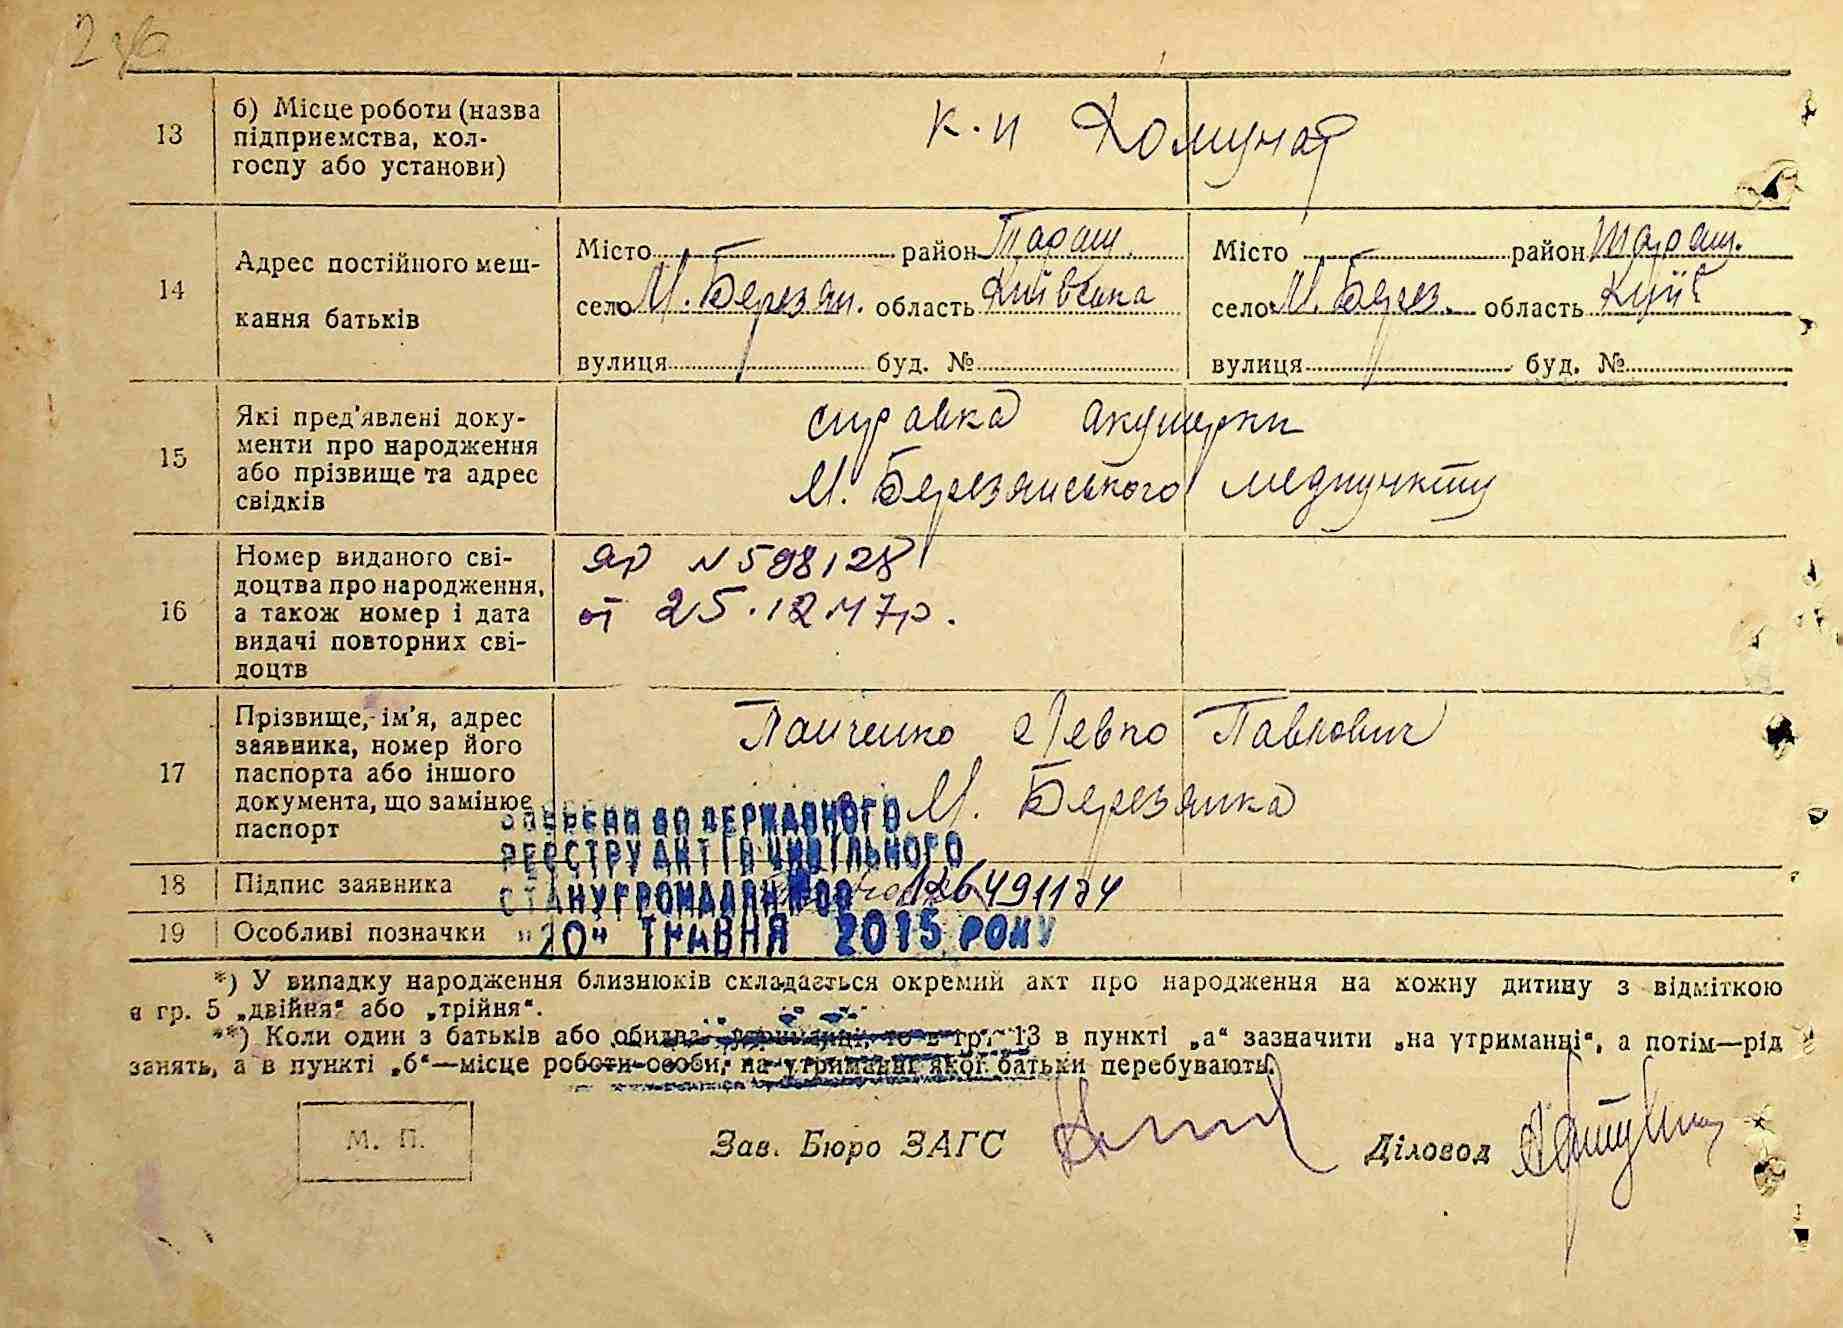 13
б) Місце роботи (назва
підприємства, кол-
госпу або установи)
к-п Комунар
14
Адрес постійного меш-
кання батьків
Місто район Таращ.
село М. Березян. область Київська
вулиця буд. №
Місто район Таращ.
село М. Берез. область Київ
вулиця буд. №
15
Які пред'явлені доку-
менти про народження
або прізвище та адрес
свідків
справка акушерки
М. Березянського медпункту
16
Номер виданого сві-
доцтва про народження,
а також номер і дата
видачі повторних сві-
доцтв
ЯР N 598128
от 25.12.47р.
17
Прізвище, ім'я, адрес
заявника, номер його
паспорта або іншого
документа, що замінює
паспорт
Панченко Явко Павлович
М. Березянка
ВНЕСЕНО ДО ДЕРЖАВНОГО
РЕЄСТРУ АКТІВ ЦИВІЛЬНОГО
СТАНУ ГРОМАДЯН
18
Підпис заявника
19
Особливі позначки
"20" ТРАВНЯ 2015 РОКУ
*) У випадку народження близнюків складається окремий акт про народження на кожну дитину з відміткою
в гр. 5 „двійня“ або „трійня“.
**) Коли один з батьків або обидва то в гр. 13 в пункті „а“ зазначити „на утриманні“, а потім—рід
занять, а в пункті „б“—місце роботи особи, на утриманні якої батьки перебувають.
М. П.
Зав. Бюро ЗАГС
Діловод